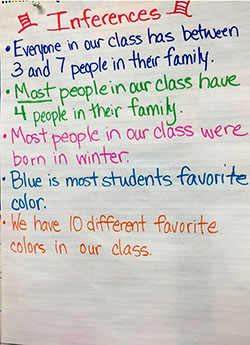 Inferences
• Everyone in our class has between
3 and 7 people in their family.
• Most people in our class have
4 people in their family.
• Most people in our class were
born in winter.
• Blue is most students favorite
color.
• We have 10 different favorite
colors in our class.